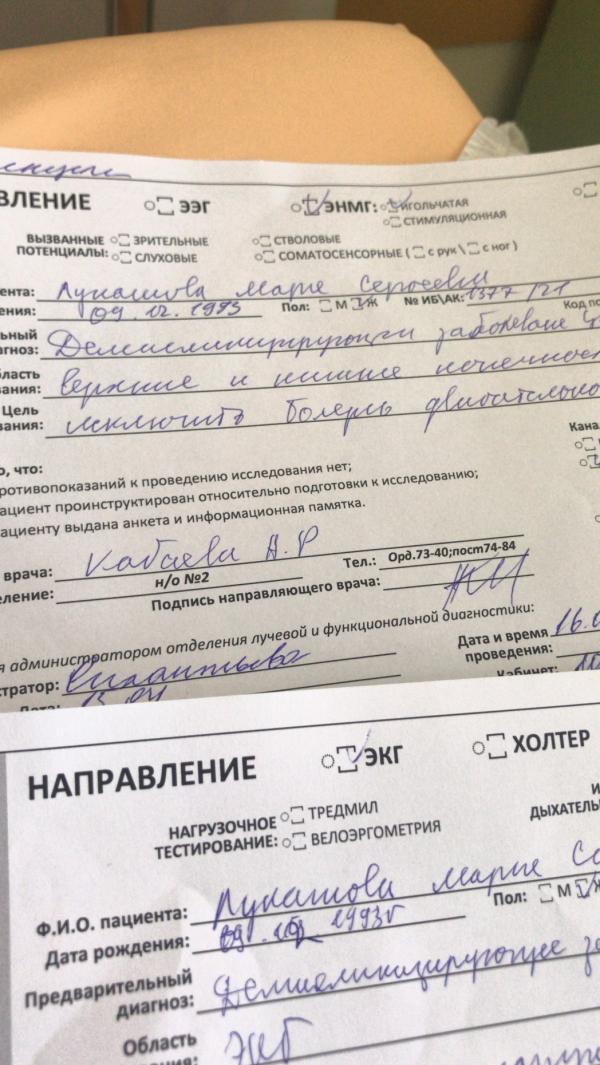 ВЛЕНИЕ ЭЭГ ЭНМГ: ИГОЛЬЧАТАЯ
СТИМУЛЯЦИОННАЯ
ВЫЗВАННЫЕ ПОТЕНЦИАЛЫ: ЗРИТЕЛЬНЫЕ СТВОЛОВЫЕ
СЛУХОВЫЕ СОМАТОСЕНСОРНЫЕ ( с рук \ с ног )
иента: Лукашова Мария Сергеевна
ения: 09.12.1993 Пол: М Ж № ИБ\АК: 1377/21 Код по
льный диагноз: Демиелинизирующее заболевание
бласть вания: верхние и нижние конечности
Цель вания: исключить болезнь двигательного
о, что:
ротивопоказаний к проведению исследования нет;
ациент проинструктирован относительно подготовки к исследованию;
ациенту выдана анкета и информационная памятка.
Кана
врача: Кабаева А.Р Тел.: Орд.73-40;пост74-84
еление: н/о №2 Подпись направляющего врача:
я администратором отделения лучевой и функциональной диагностики:
стратор: Дата и время проведения: 16.0
Дата: Кабинет:
НАПРАВЛЕНИЕ ЭКГ ХОЛТЕР
НАГРУЗОЧНОЕ ТЕСТИРОВАНИЕ: ТРЕДМИЛ
ВЕЛОЭРГОМЕТРИЯ ДЫХАТЕЛЬ
Ф.И.О. пациента: Лукашова Мария Се
Дата рождения: 1993г Пол: М Ж
Предварительный диагноз: Демиелинизирующее за
Область ния: ЭКГ